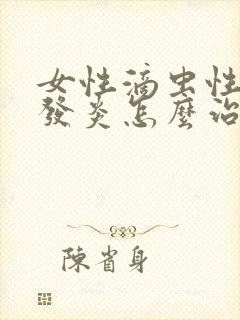 女性滴虫性
發炎怎麼治
陳省身